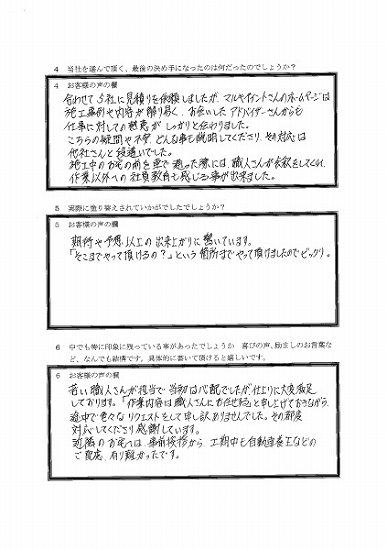 4 当社を選んで頂く、最後の決め手になったのは何だったのでしょうか?
4 お客様の声の欄
合わせて5社に見積りを依頼しましたが、マルキペイントさんのホームページは
施工事例や内容が解り易く、お会いしたアドバイザーさんからも
仕事に対しての態度がしっかりと伝わりました。
こちらの疑問や不安、どんな事も説明してくださり、その対応は
他社さんと段違いでした。
施工中のお宅の前を車で通った際には、職人さんが会釈をしてくれ、
作業以外への社員教育も感じる事が出来ました。
5 実際に塗り替えされていかがでしたでしょうか?
5 お客様の声の欄
期待や予想以上の出来上がりに驚いています。
「そこまでやって頂けるの?」という箇所までやって頂けましたのでビックリ。
6 中でも特に印象に残っている事があったでしょうか 喜びの声、励ましのお言葉な
ど、なんでも結構です。具体的に書いて頂けると嬉しいです。
6 お客様の声の欄
若い職人さんが担当で当初は心配でしたが、仕上りに大変満足
しております。「作業内容は職人さんにお任せする」と申し上げておきながら、
途中で色々なリクエストをして申し訳ありませんでした。その都度
対応してくださり感謝しています。
近隣のお宅へは、事前挨拶から、工期中も自動車養生などの
ご配慮、有り難かったです。